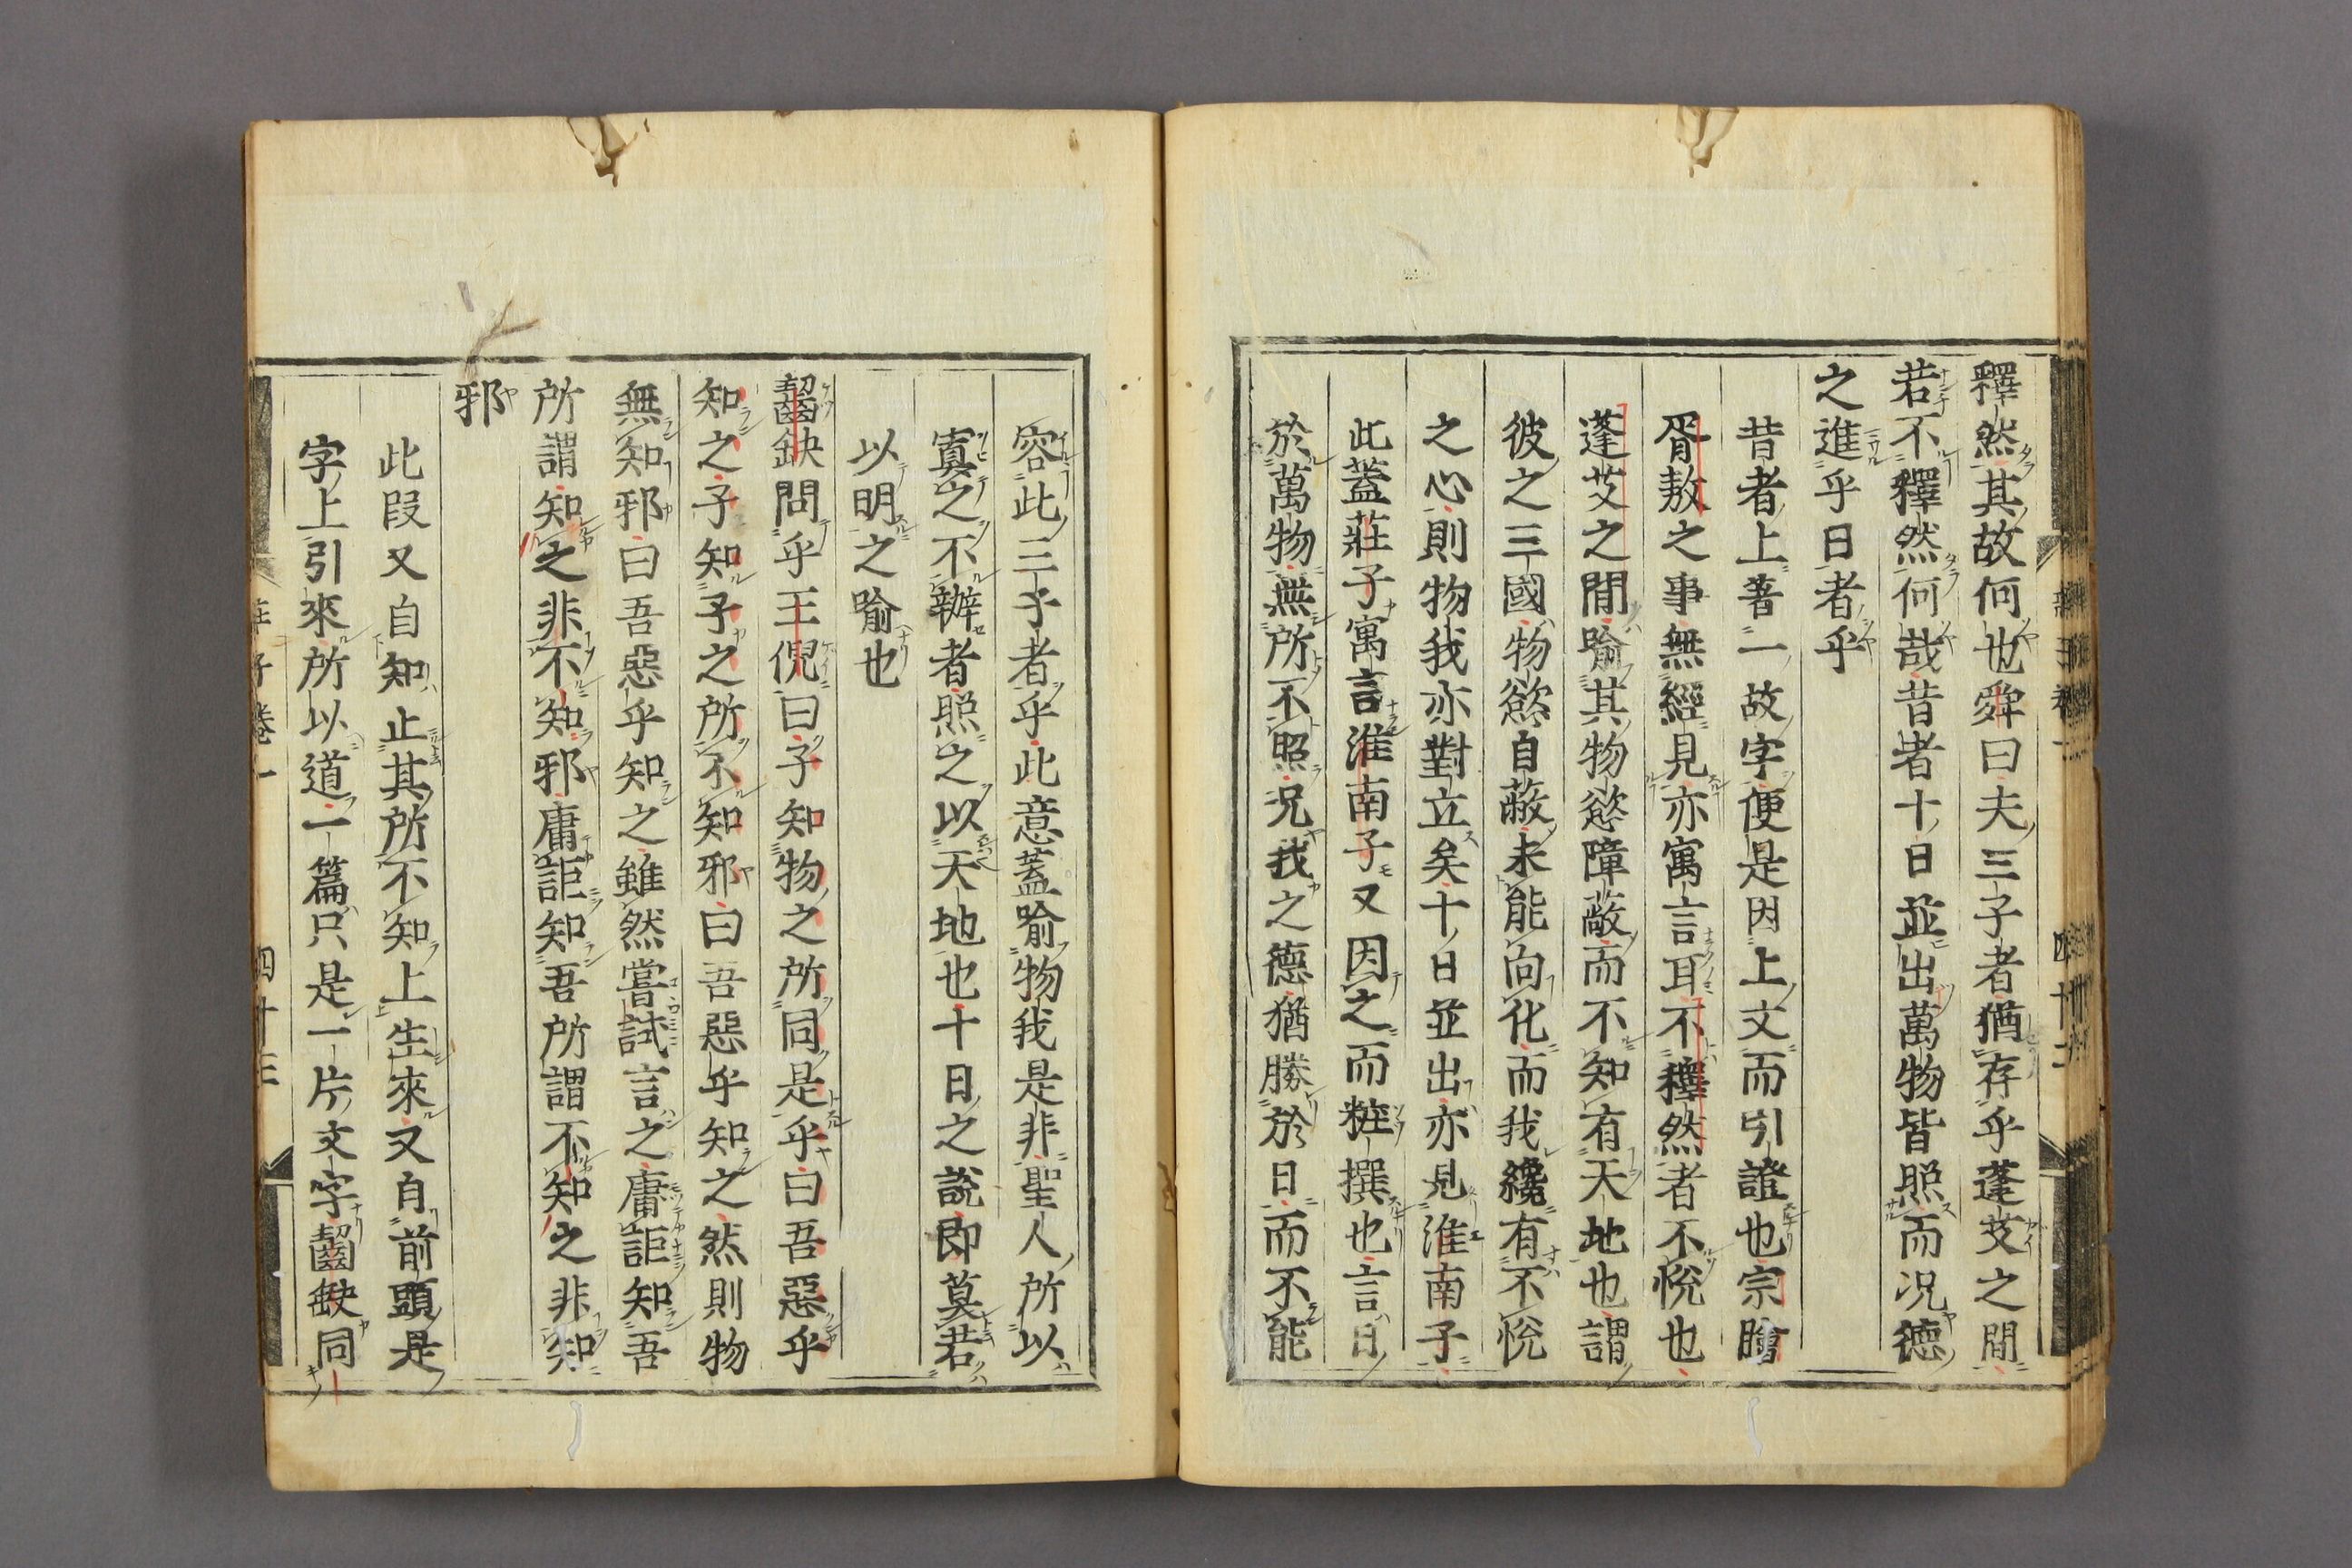 釋然其故何也舜曰夫三子者猶存乎蓬艾之間
若不釋然何哉昔者十日並出萬物皆照而况德
之進乎日者乎
昔者上著一故字便是因上文而引證也宗膾
胥敖之事無經見亦寓言耳不釋然者不悅也
蓬艾之間喻其物慾障蔽而不知有天地也謂
彼之三國物慾自蔽未能向化而我纔有不悅
之心則物我亦對立矣十日並出亦見淮南子
此蓋莊子寓言淮南子又因之而粧撰也言日
於萬物無所不照况我之德猶勝於日而不能
容此三子者乎此意蓋喻物我是非聖人所以
寘之不辯者照之以天地也十日之說即莫若
以明之喻也
齧缺問乎王倪曰子知物之所同是乎曰吾惡乎
知之子知子之所不知邪曰吾惡乎知之然則物
無知邪曰吾惡乎知之雖然嘗試言之庸詎知吾
所謂知之非不知邪庸詎知吾所謂不知之非知
邪
此段又自知止其所不知上生來又自前頭是
字上引來所以道一篇只是一片文字齧缺同
莊子卷一
四十三